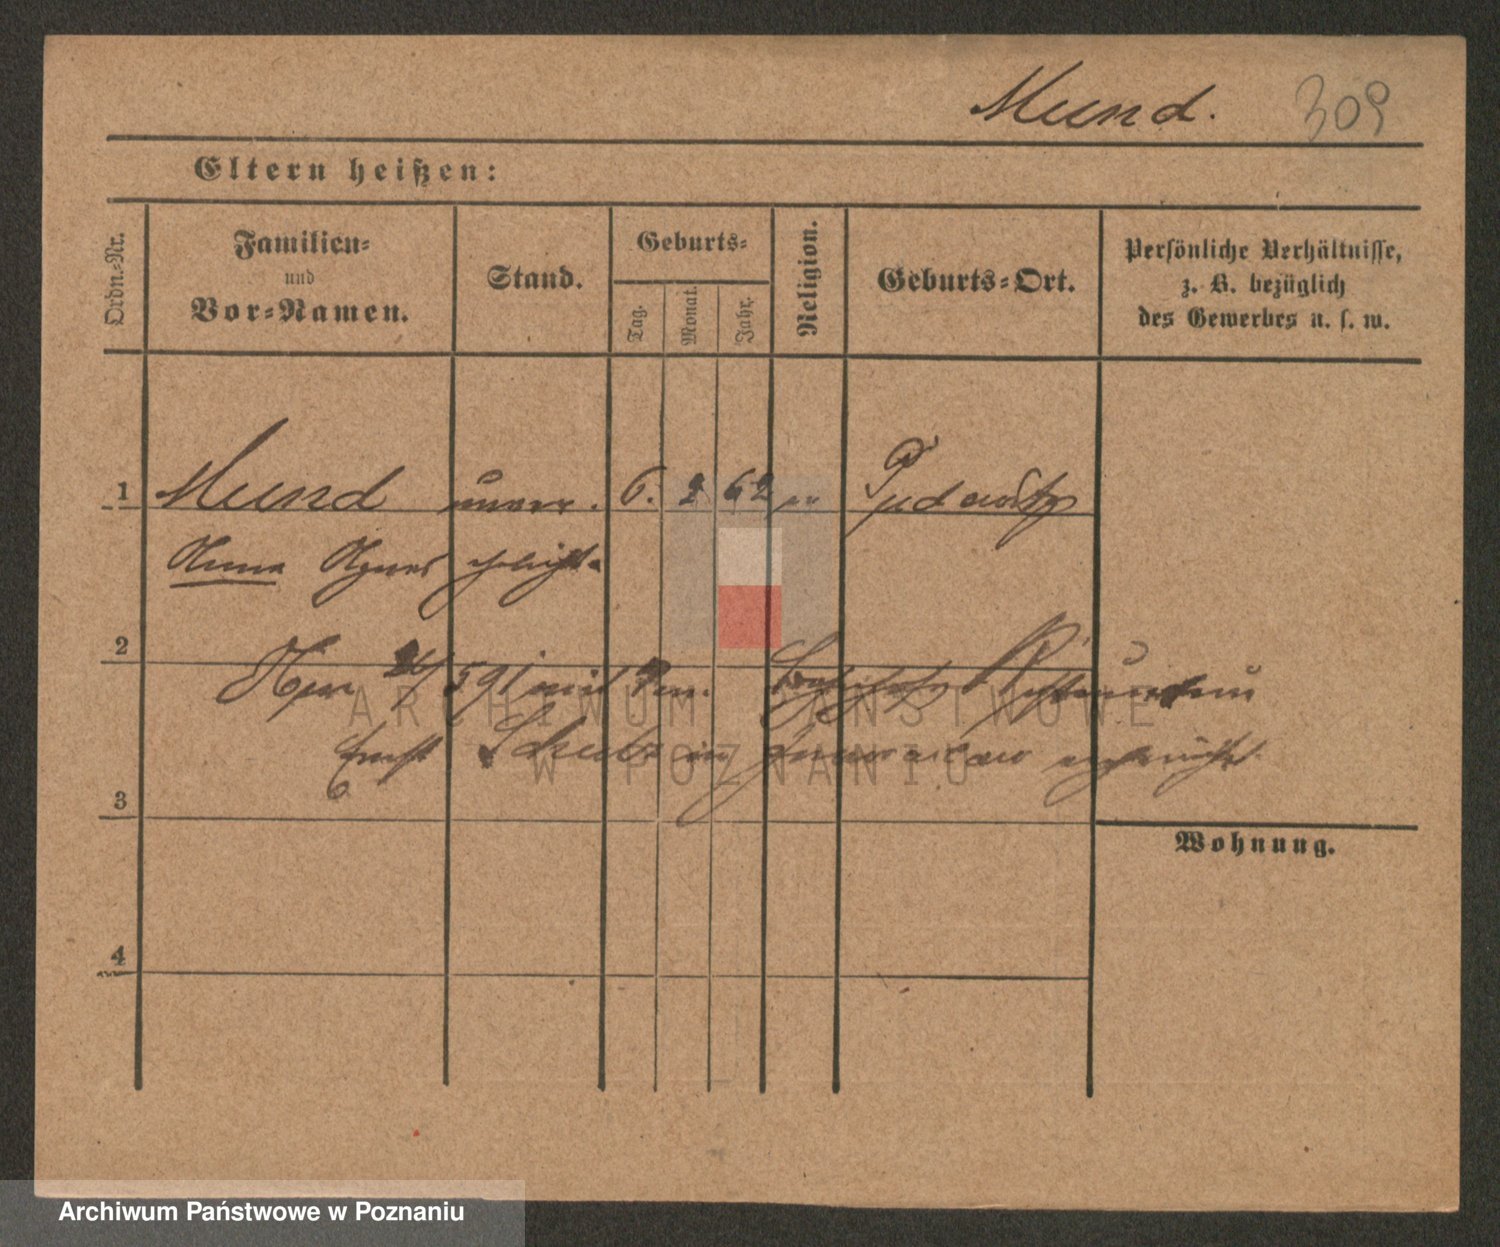 Mund. 309
Eltern heißen:
Ordn.-Nr.
Familien-
und
Vor-Namen.
Stand.
Geburts-
Tag.
Monat.
Jahr.
Religion.
Geburts-Ort.
Persönliche Verhältnisse,
z. B. bezüglich
des Gewerbes u. s. w.
1 Mund unver. 6. 2 62 Pudewitz
Anna Agnes ehelicht.
2
mit dem
Ernst Schulz in
3
Wohnung.
4
ARCHIWUM PAŃSTWOWE
W POZNANIU
Archiwum Państwowe w Poznaniu